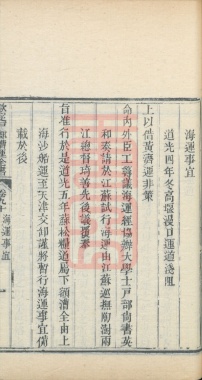 海運事宜
道光四年冬高堰漫口運道淺阻
上以借黃濟運非策
命內外臣工籌議海運經協辦大學士戶部尚書英
和奏請於江蘇試行海運由江蘇巡撫陶澍兩
江總督琦善先後議覆奏
旨准行於是道光五年蘇松糧道屬下額漕全由上
海沙船運至天津交卸謹將暫行海運事宜備
載於後
卷九十 海運事宜